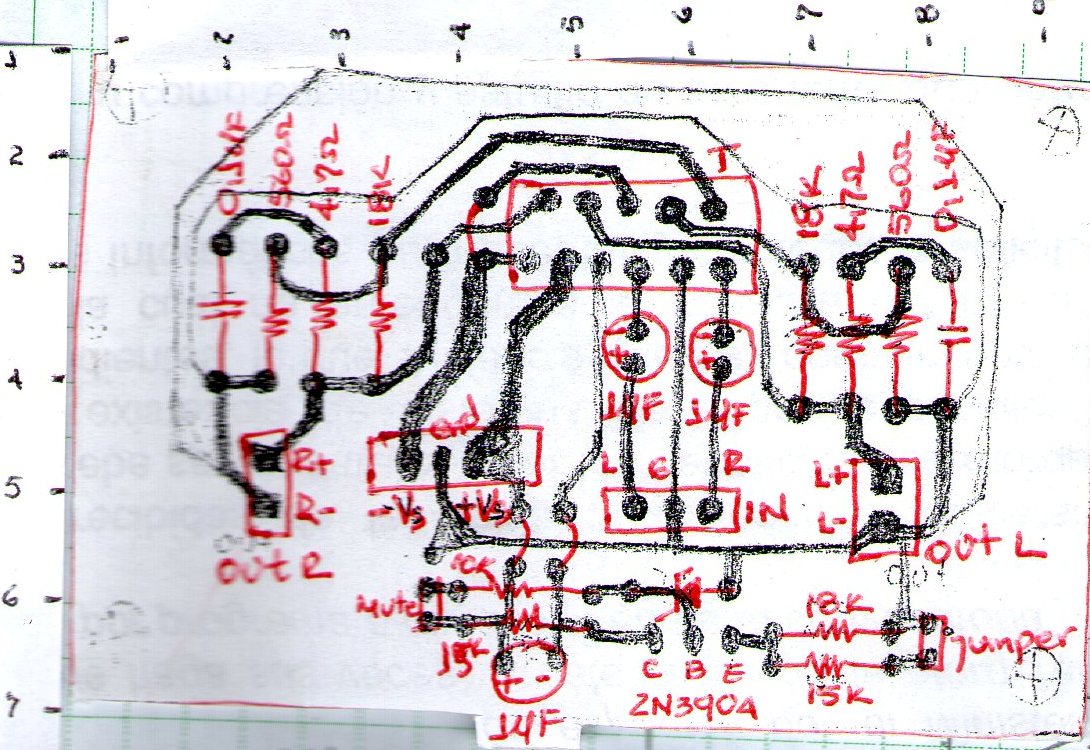 -1 -2 -3 -4 -5 -6 -7 -8 -9
1
2
3
4
5
6
7
0,1µF 560Ω 4.7Ω 18K
1
18K 4.7Ω 560Ω 0,1µF
- +
- +
1µF 1µF
Gnd
-Vs +Vs
R+
R-
OUT R
L G R
IN
L+
L-
OUT L
10K
Mute
15K
+ -
1µF
C B E
2N3904
18K
15K
Jumper